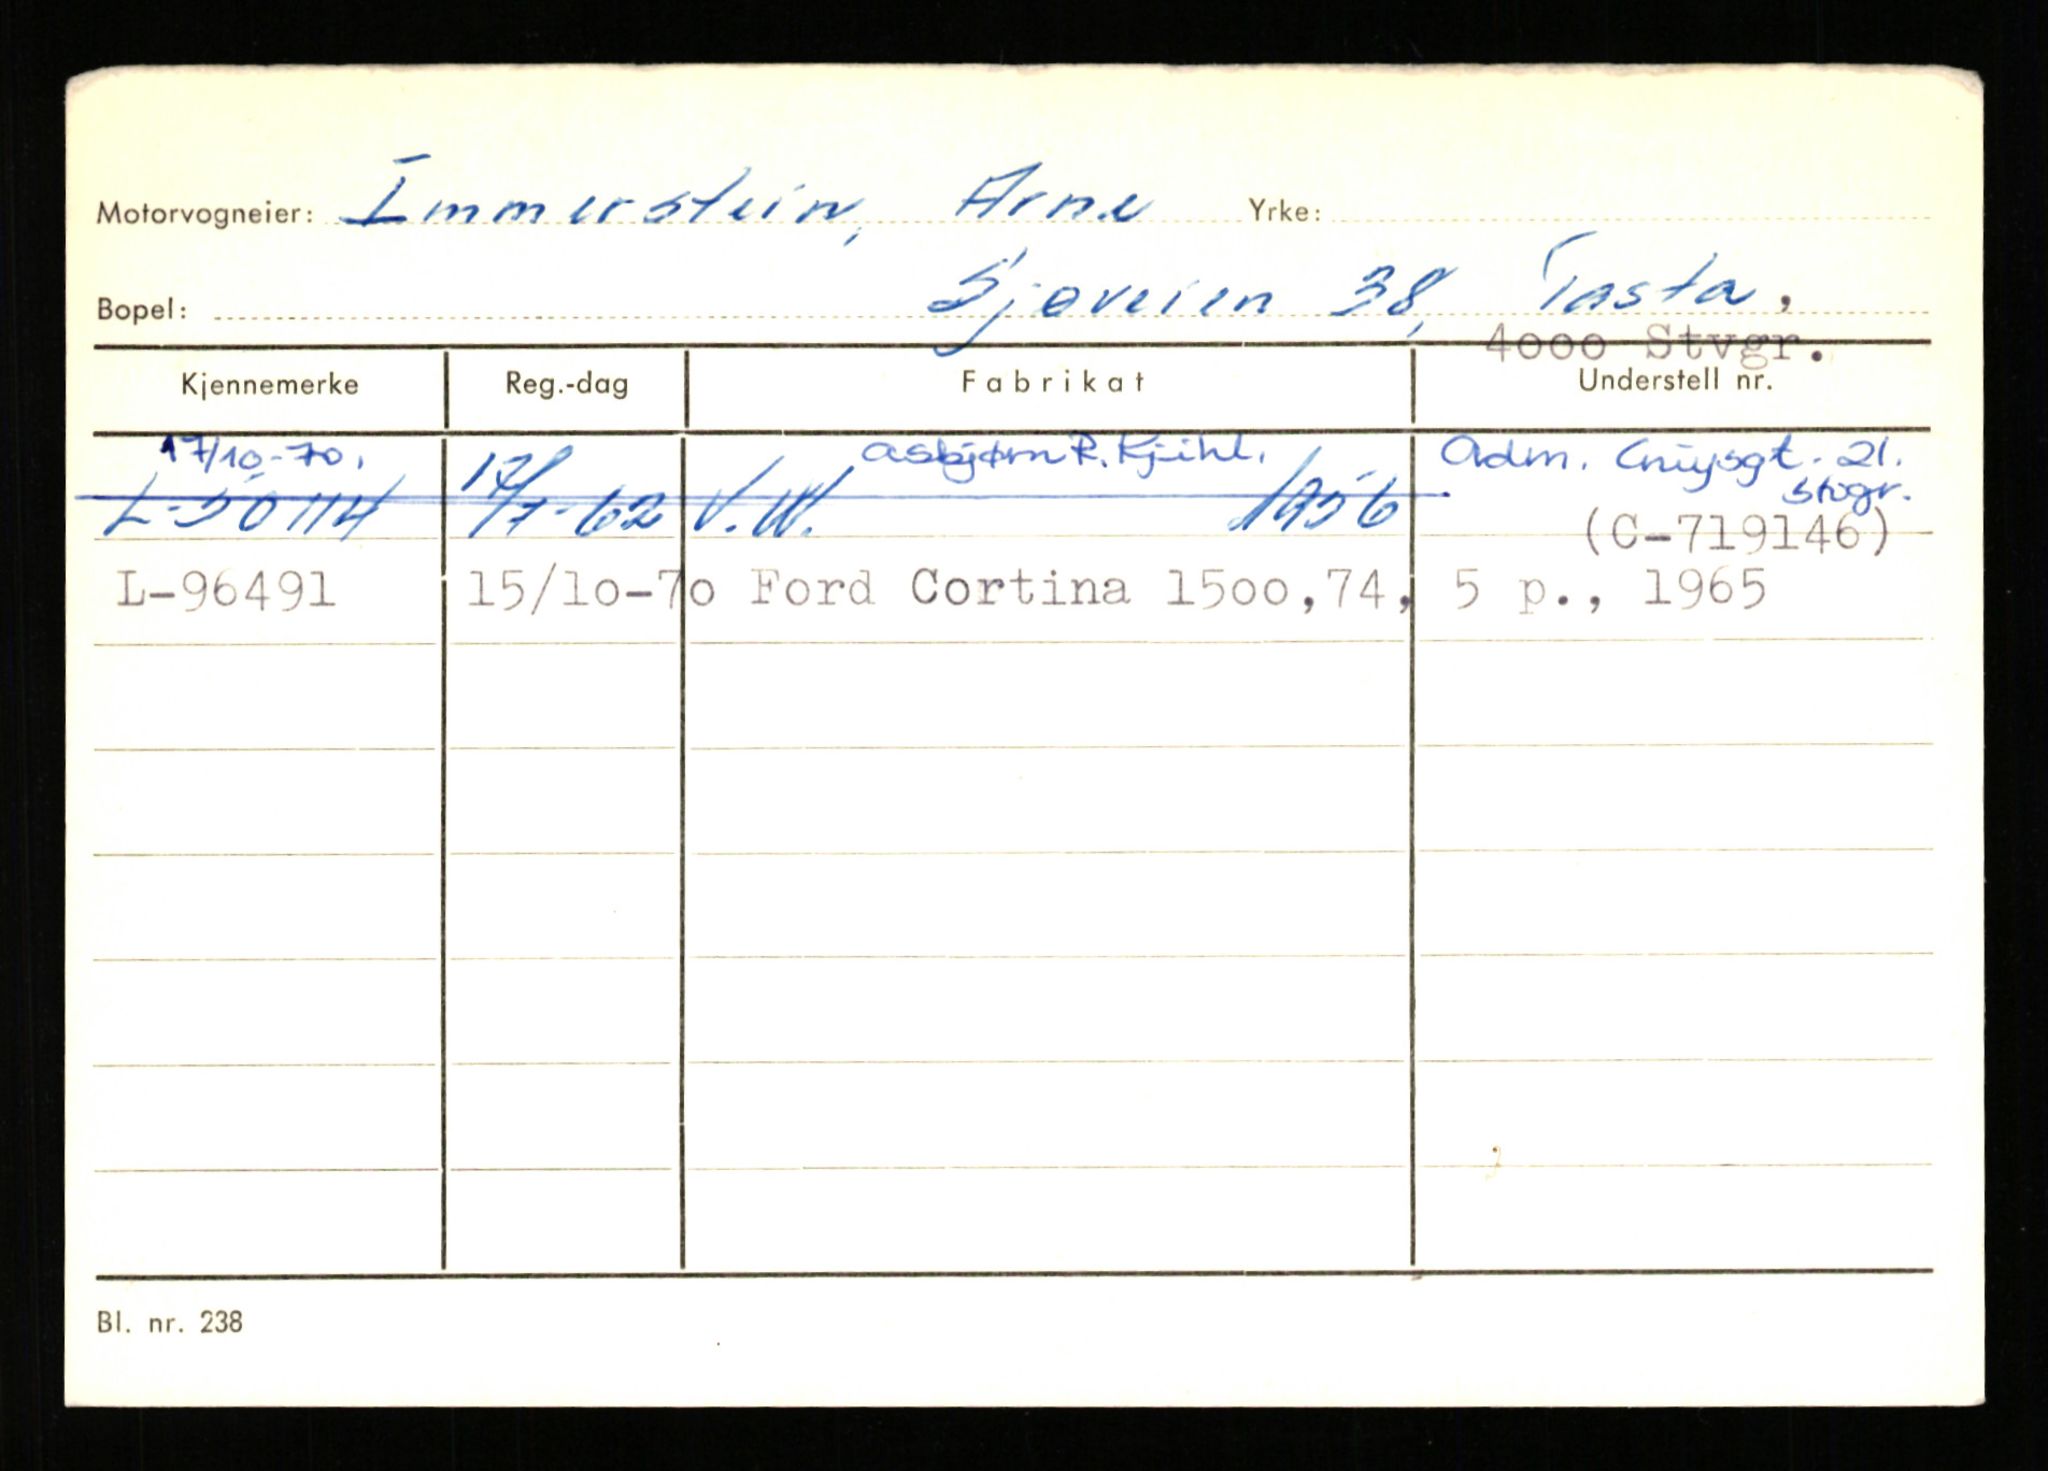 Motorvogneier: Immerstein, Arne Yrke:
Bopel: Sjøveien 38, Tasta,
4000 Stvgr.
Kjennemerke Reg.-dag Fabrikat Understell nr.
17/10-70. Asbjørn R. Kjühl. Adm. Cruysgt. 21.
Stvgr.
L-50114 17/7-62 V.W. 1956
(C-719146)
L-96491 15/10-70 Ford Cortina 1500,74, 5 p., 1965
Bl. nr. 238